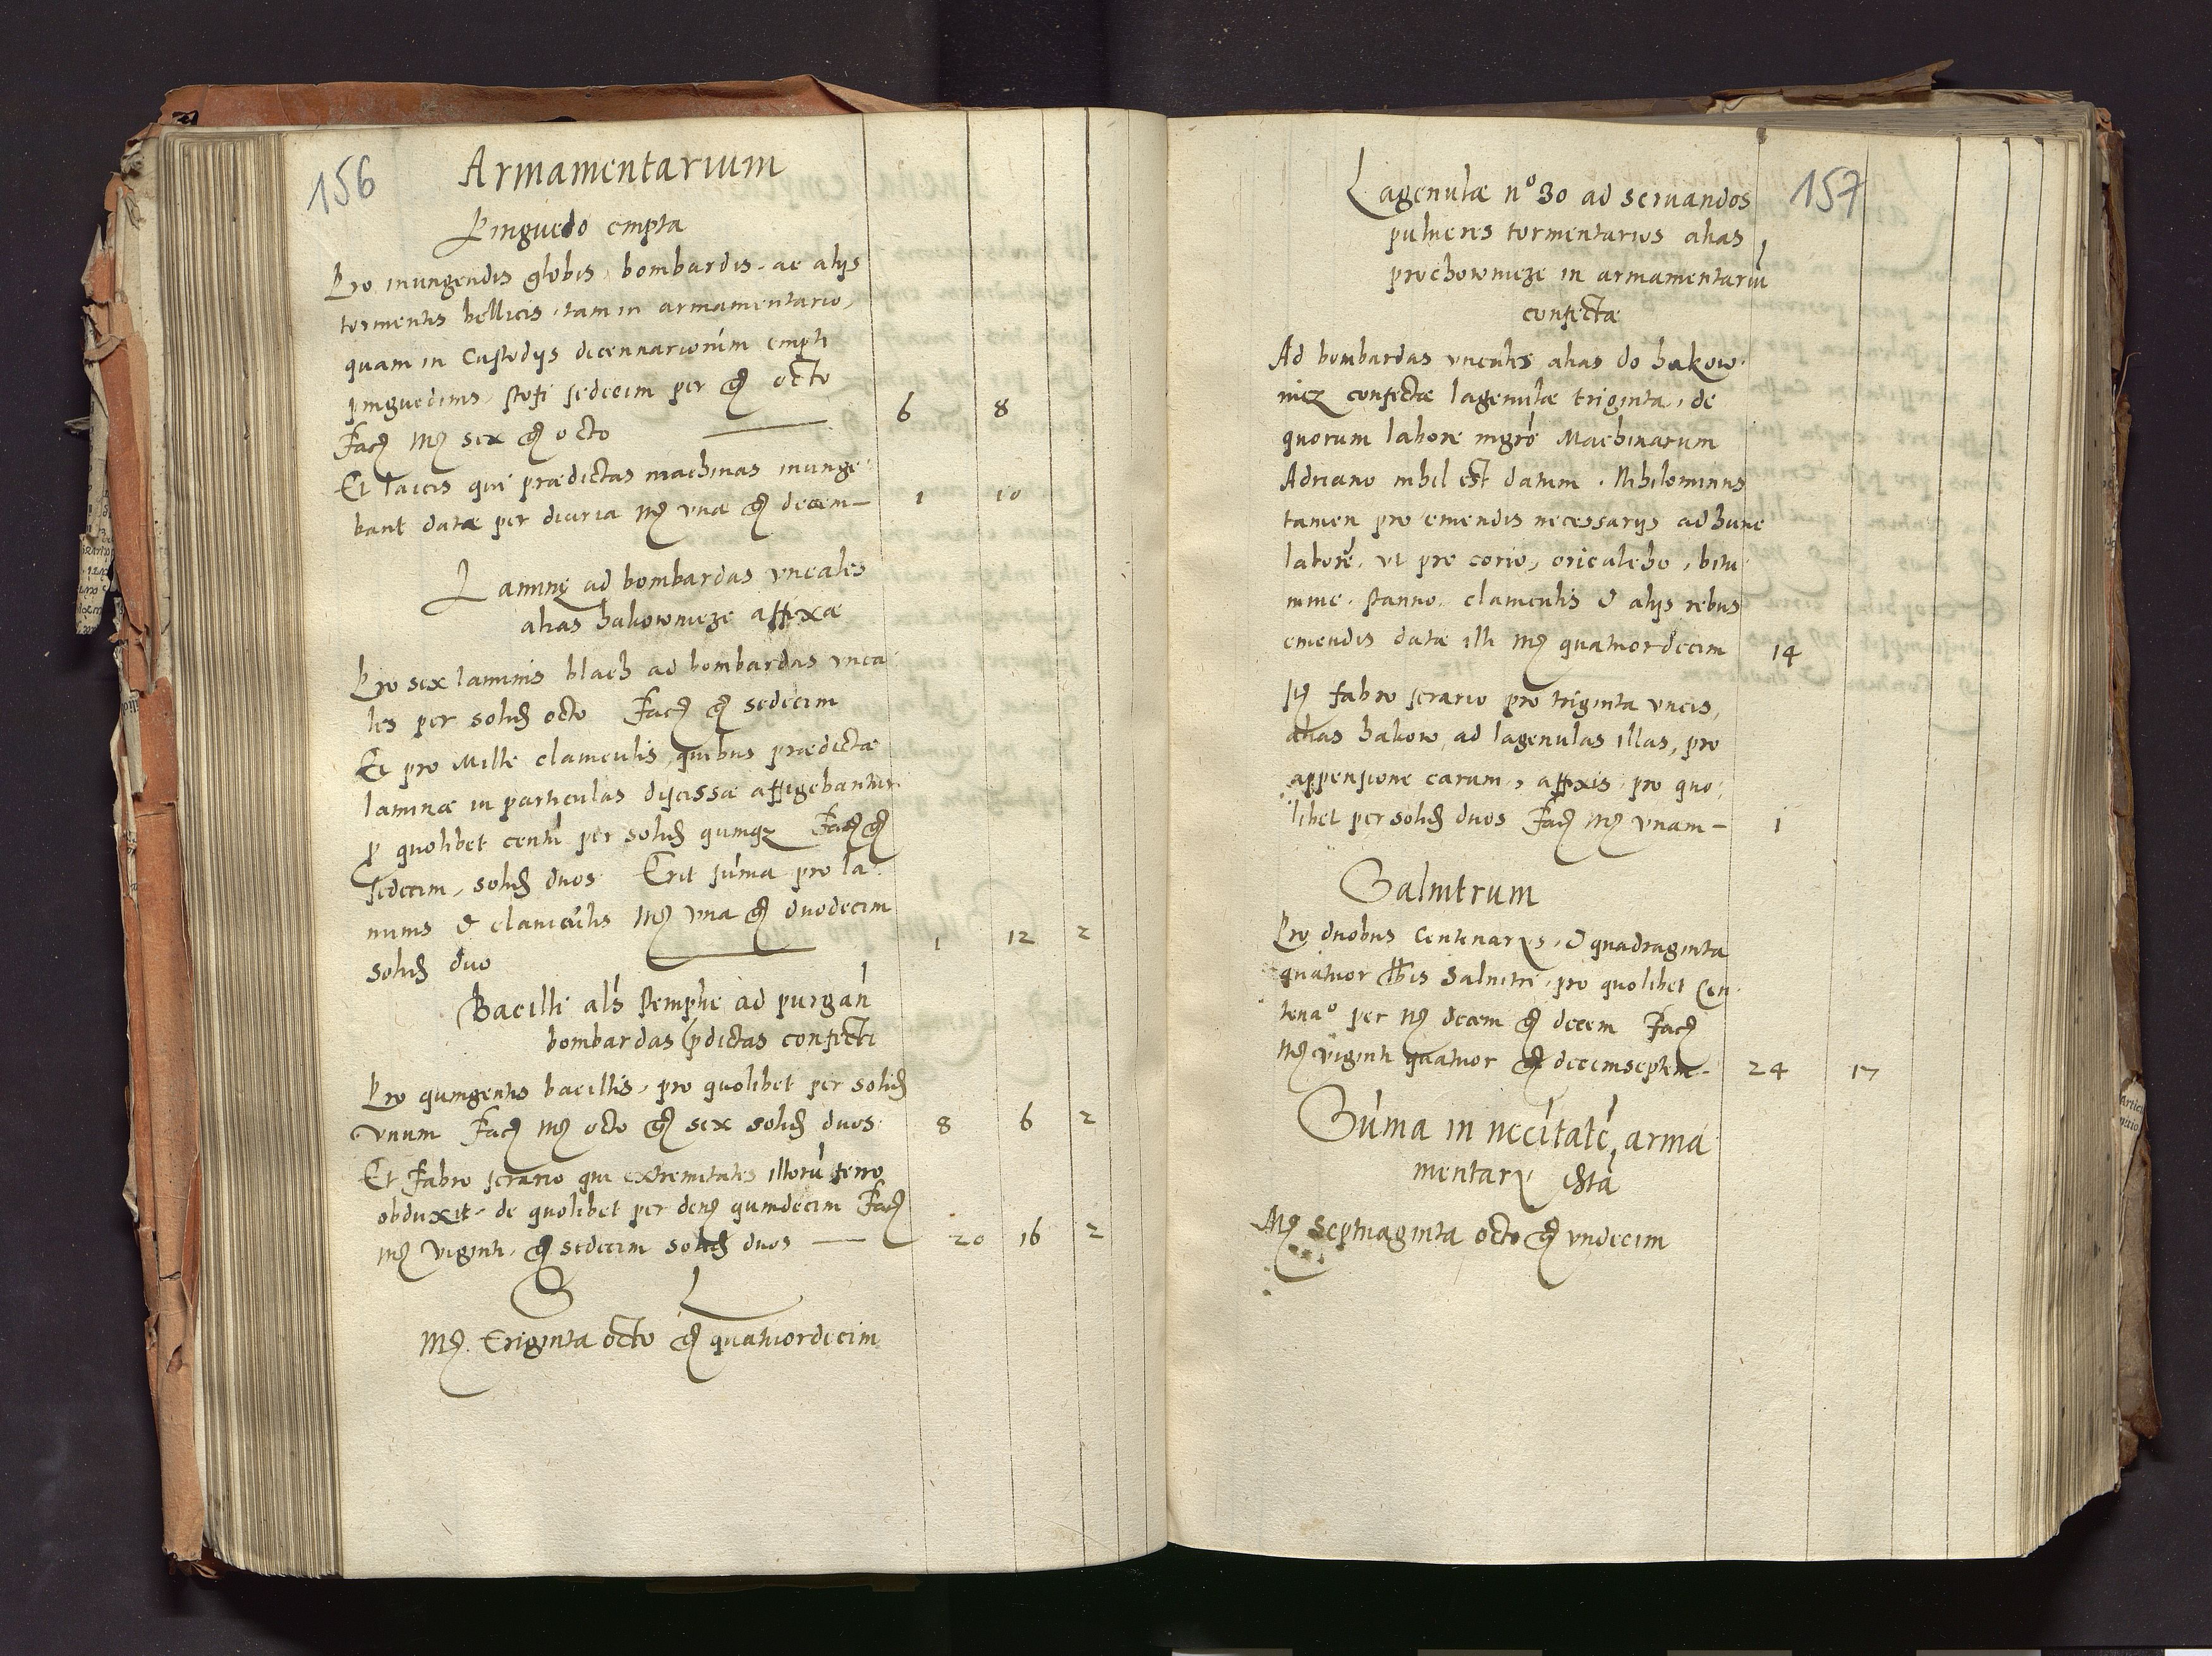 156
Armamentarium
Pinguedo empta
Pro inungendis globis, bombardis, ac alijs
tormentis bellicis, tam in armamentario,
quam in Custodijs decennariorum empti
pinguedinis stofi sedecim per gr octo
Fac Mr sex gr octo 6 8
Et laicis qui praedictas machinas inunge-
bant datae per diuria Mr vna gr decem 1 10
Laminę ad bombardas vncales
alias hakownicze affixae
Pro sex laminis blach ad bombardas vnca-
les per solid octo Fac gr sedecim
Et pro Mille clauiculis, quibus praedictae
laminae in particulas discissae affigebantur
p quolibet centú per solid quinqz Fac gr
sedecim, solid duos Erit súma pro la-
minis & clauiculis Mr vna gr duodecim
solid duo 1 12 2
Bacilli als stemple ad purgan
bombardas pdictas confecti
Pro quingentis bacillis, pro quolibet per solid
vnum Fac Mr octo gr sex solid duos 8 6 2
Et fabro serario qui extremitates illorú ferro
obduxit, de quolibet per den quindecim Fac
Mr viginti, gr sedecim solid duos 20 16 2
S L
Mr Triginta octo gr quatuordecim
157
Lagenulae nº 30 ad seruandos
pulueres tormentarios alias
prochownicze in armamentariú
confectae
Ad bombardas vncales alias do hakow-
nicz confectae lagenulae triginta, de
quorum labore mgro Machinarum
Adriano nihil est datum. Nihilominus
tamen pro emendis necessarijs ad hunc
laboré, vt pro corio, oricalcho, bitu-
mine, stanno, clauiculis & alijs rebus
emendis datae illi Mr quatuordecim 14
It fabro serario pro triginta vncis,
alias hakow, ad lagenulas illas, pro
appensione earum, affixis, pro quo-
libet per solid duos Fac Mr vnam 1
Salnitrum
Pro duobus Centenarys, & quadraginta
quatuor lbis Salnitri, pro quolibet Cen-
tenaº per Mr decem gr decem Fac
Mr viginti quatuor gr decemseptem 24 17
Súma in necitaté arma-
mentarij exta
Mr Septuaginta octo gr vndecim